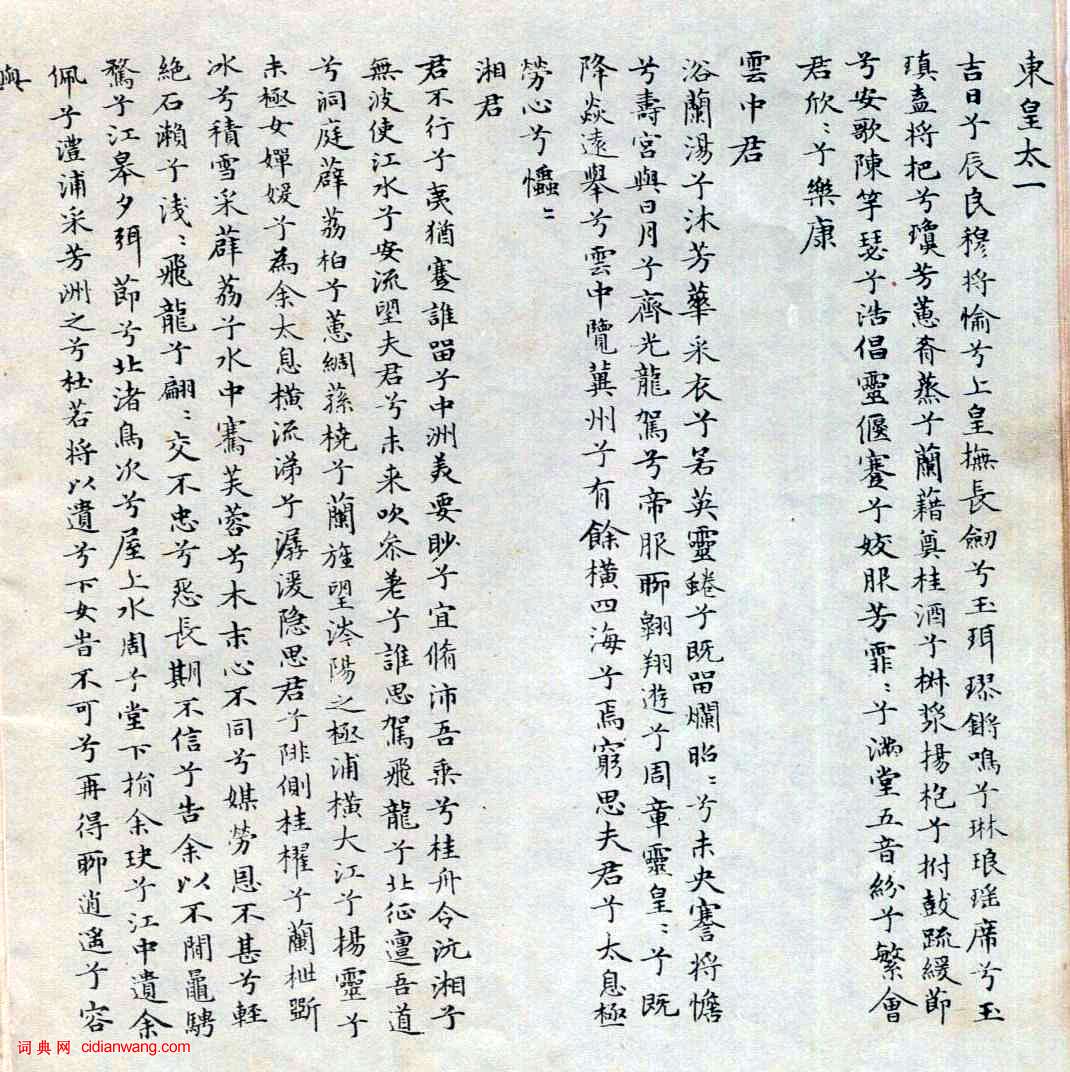 東皇太一
吉日兮辰良穆將愉兮上皇撫長劒兮玉珥璆鏘鳴兮琳琅瑶席兮玉
瑱盍將把兮瓊芳蕙肴蒸兮蘭藉奠桂酒兮椒漿揚枹兮拊鼓疏緩節
兮安歌陳竽瑟兮浩倡靈偃蹇兮姣服芳霏〻兮滿堂五音紛兮繁會
君欣〻兮樂康
雲中君
浴蘭湯兮沐芳華采衣兮若英靈蜷兮既留爛昭〻兮未央謇將憺
兮壽宮與日月兮齊光龍駕兮帝服聊翱翔遊兮周章靈皇〻兮既
降焱遠舉兮雲中覽冀州兮有餘橫四海兮焉窮思夫君兮太息極
勞心兮㦀〻
湘君
君不行兮夷猶蹇誰留兮中洲美要眇兮宜脩沛吾乘兮桂舟令沅湘兮
無波使江水兮安流望夫君兮未来吹參差兮誰思駕飛龍兮北征邅吾道
兮洞庭薜荔柏兮蕙綢蓀橈兮蘭旌望涔陽之極浦橫大江兮揚靈兮
未極女嬋媛兮為余太息橫流涕兮潺湲隱思君兮陫側桂櫂兮蘭枻斲
冰兮積雪采薜荔兮水中搴芙蓉兮木末心不同兮媒勞恩不甚兮輕
絶石瀨兮淺〻飛龍兮翩〻交不忠兮怨長期不信兮告余以不閒鼂騁
騖兮江皋夕弭節兮北渚鳥次兮屋上水周兮堂下捐余玦兮江中遺余
佩兮澧浦采芳洲之兮杜若將以遺兮下女旹不可兮再得聊逍遥兮容
與
词典网 cidianwang.com